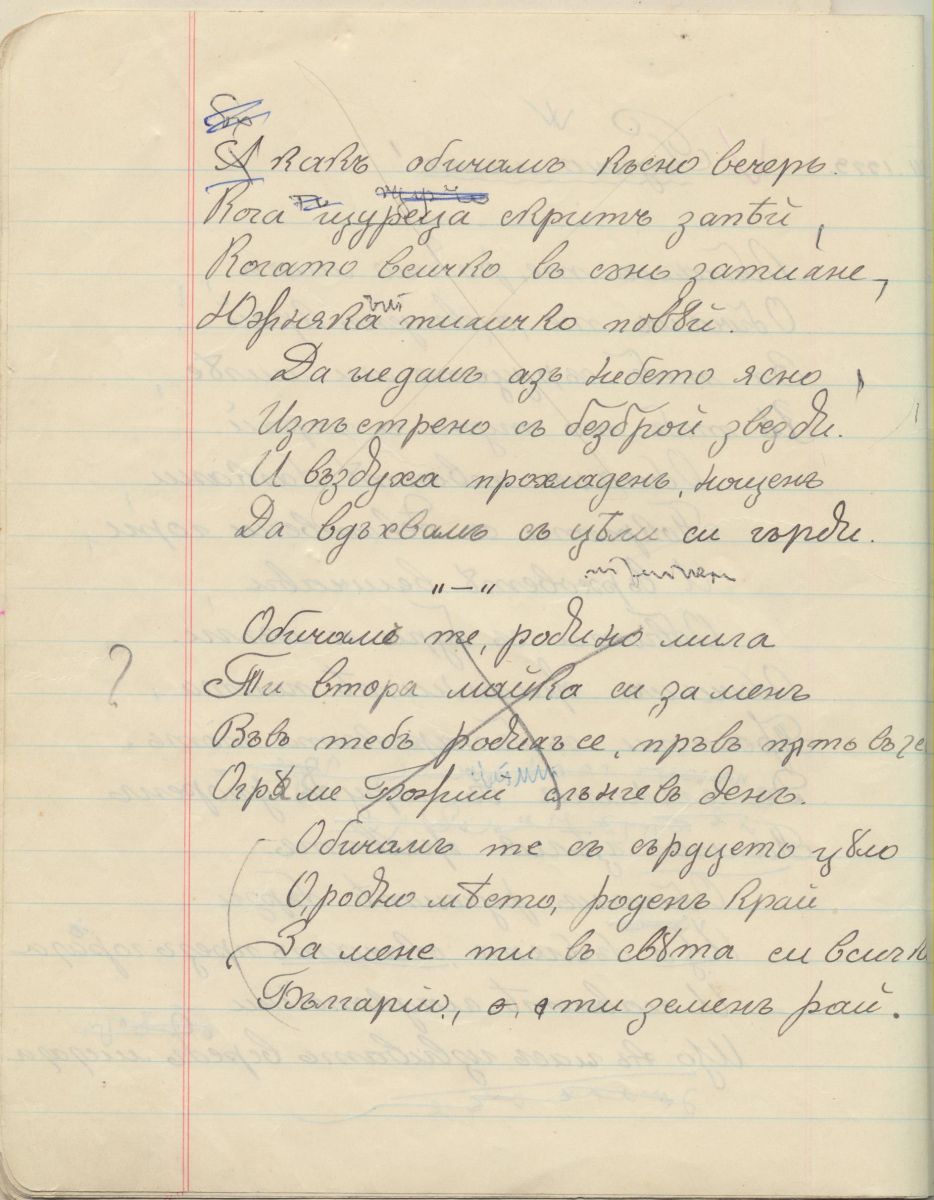 А какъ обичамъ късно вечерь.
Кога щуреца скритъ запѣй,
Когато всичко въ сънь затихне,
Южняка тихичко повѣй.
Да гледамъ азъ небето ясно,
Изпъстрено съ безброй звезди.
И въздуха прохладенъ, нощенъ
Да вдъхвамъ съ цѣли си гърди.
"—"
Обичамъ те, родино мила
Ти втора майка си за менъ
Въвъ тебъ родихъ се, пръвъ пѫть въ че
Огрѣ ме Божии слънчевъ денъ.
?
Обичамъ те съ сърдцето цѣло
О, родно мѣсто, роденъ край
За мене ти въ свѣта си всичк
Българіо, ти земенъ рай.